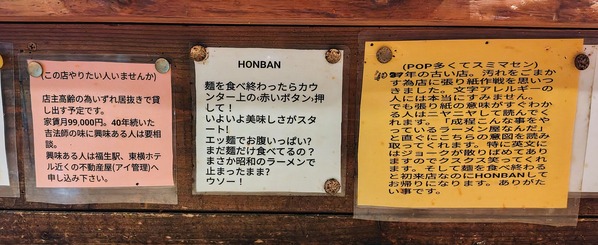 (この店やりたい人いませんか)
店主高齢の為いずれ居抜きで貸
し出す予定です。
家賃月99,000円。40年続いた
吉法師の味に興味ある人は要相
談。
興味ある人は福生駅、東横ホテ
ル近くの不動産屋(アイ管理)へ
申し込み下さい。
HONBAN
麺を食べ終わったらカウ
ンター上の、赤いボタン、押
して！
いよいよ美味しさがスター
ト!
エッ麺でお腹いっぱい?
まだ麺だけ食べてるの？
まさか昭和のラーメンで
止まったまま?
ウソー！
(POP多くてスミマセン)
年の古い店。汚れをごまか
す為店に張り紙作戦を思いつ
きました。文字アレルギーの
人には本当にすみません。
でも張り紙の意味がすぐわか
る人はニヤニヤして読んでく
れます。「成程こんな事をや
っているラーメン屋なんだ」
と直ぐにこちらの意図を読み
取ってくれます。特に英文に
はジョークが散りばめてあり
ますのでクスクス笑ってくれ
ます。そして麺を食べ終わる
と初来店なのにHONBANして
お帰りになります。ありがた
い事です。